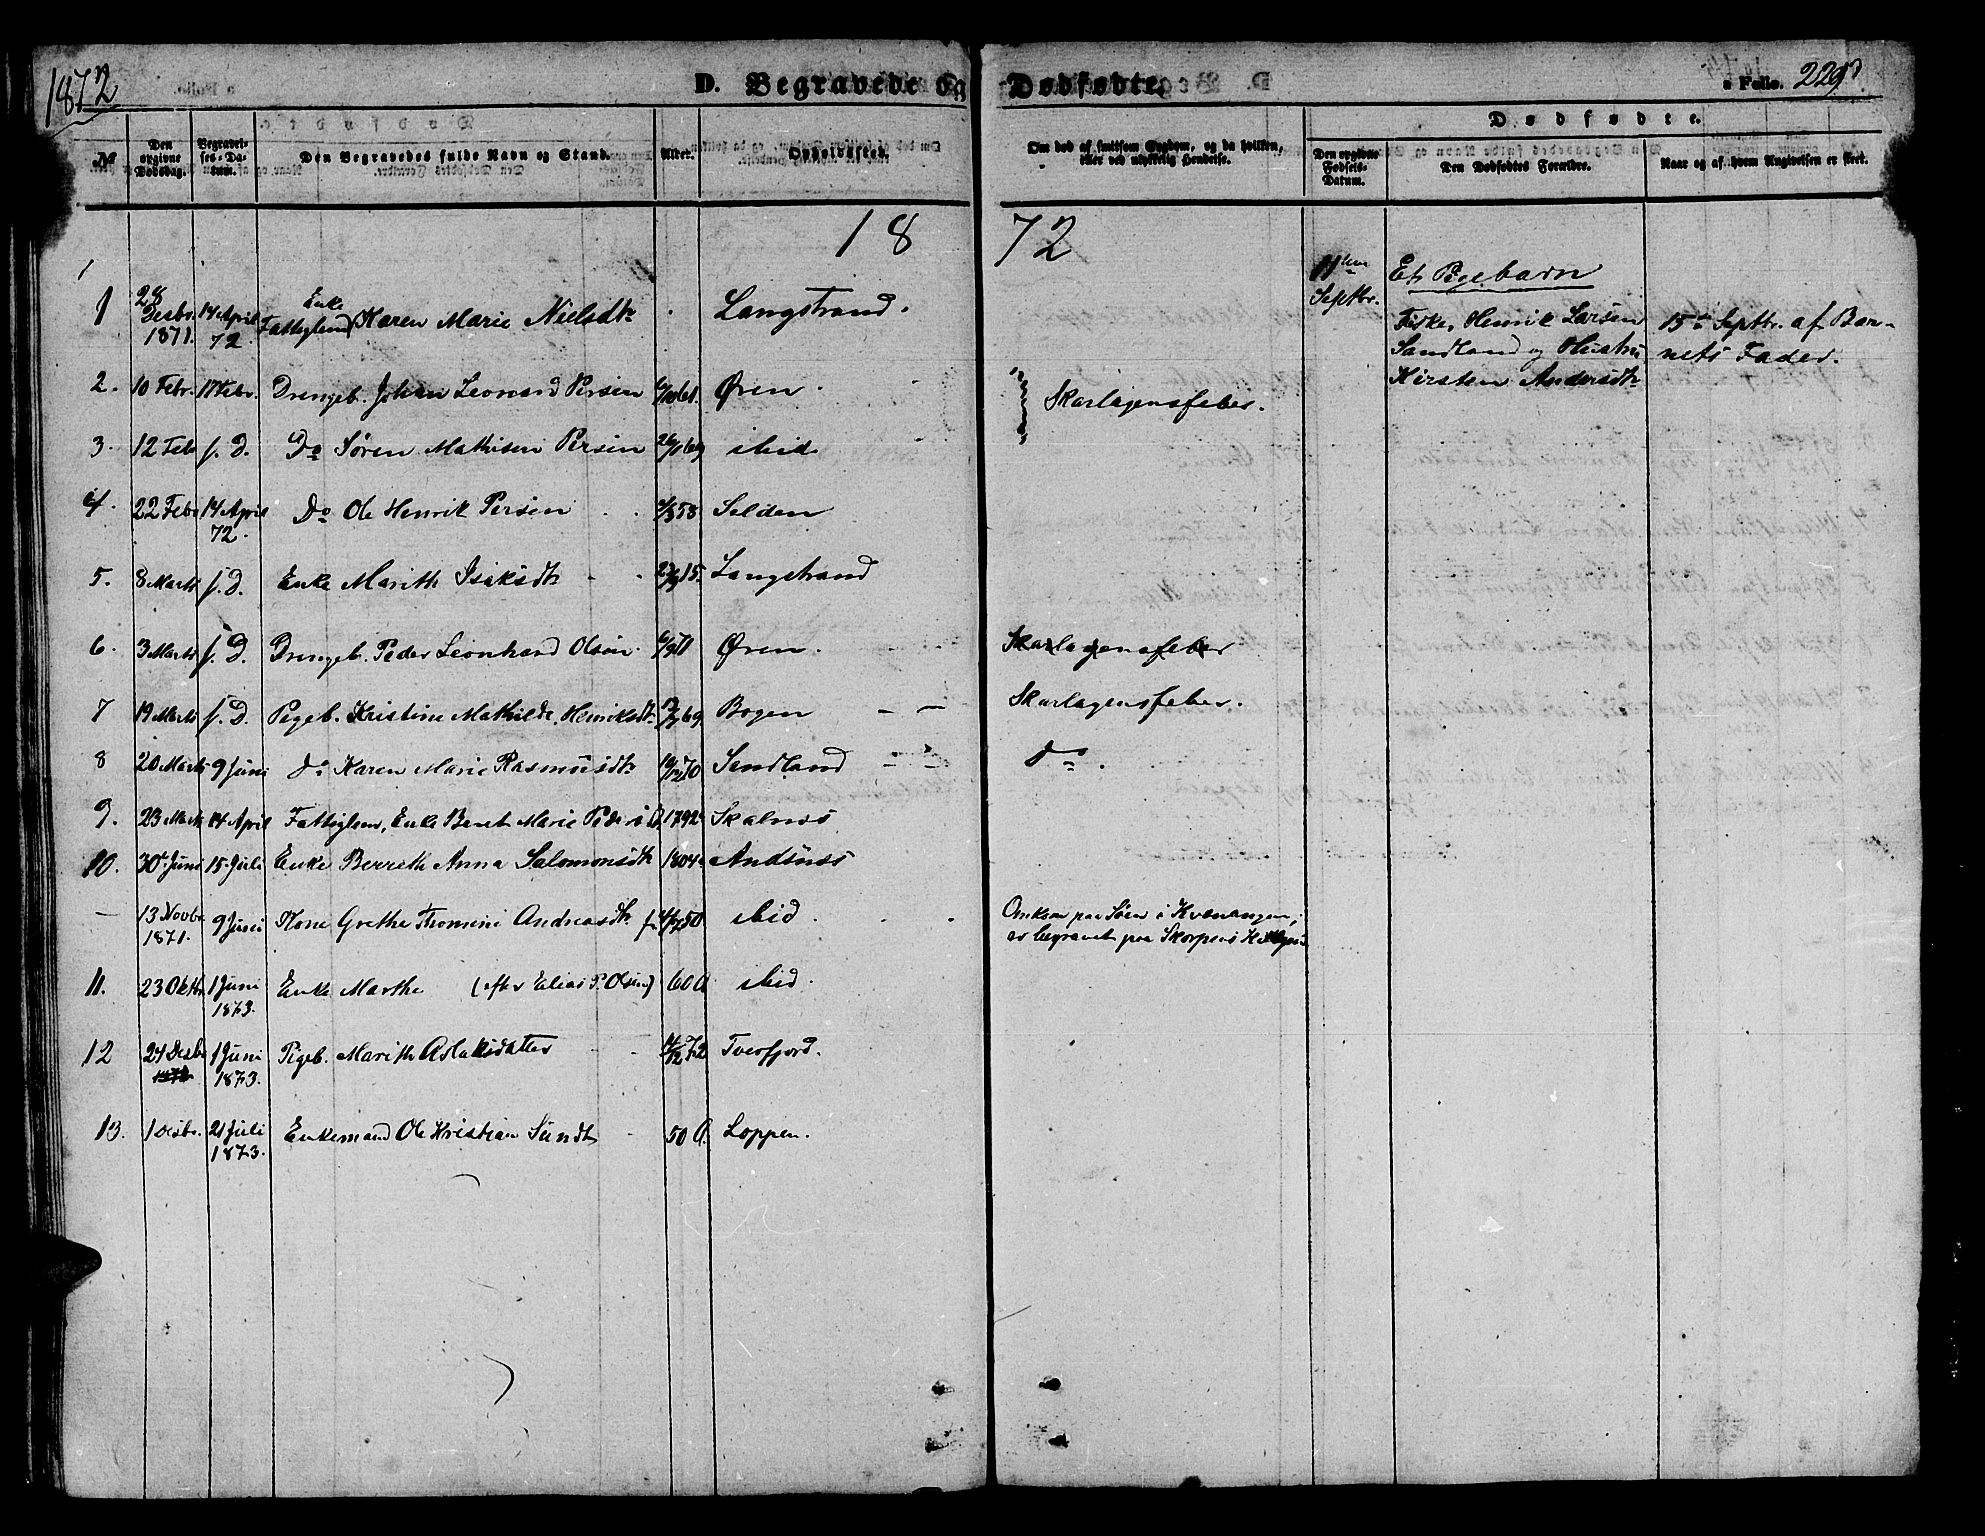 1872
D. Begravede og Dødfødte.
Folio. 229
No
Den opgivne Dødsdag.
Begravelses-Datum.
Den Begravedes fulde Navn og Stand.
Alder.
Opholdssted.
Om død af smitsom Sygdom, og da hvilken, eller ved ulykkelig Hendelse.
Dødfødte.
Den opgivne Fødsels-Datum.
Den Dødfødtes Forældre.
Naar og af hvem Angivelsen er skeet.
1872
1 28 Desbr. 1871. 14 April 72. Enke Fattiglem Karen Marie Nielsdtr. Langstrand.
2. 10 Febr. 17 Febr. Drengeb. Johan Leonard Persen Øren. Skarlagensfeber.
3. 12 Feb s. D. Do Søren Mathisen Persen ibid
4. 22 Febr 14 April 72. Do Ole Henrik Persen Selden
5. 8 Marts s. D. Enke Marith Isaksdtr Langstrand
6. 3 Marts s. D. Drengeb. Peder Leonhard Olsen. Øren. Skarlagensfeber
7 19 Marts s. D. Pigeb. Kristine Mathilde Henriksdtr Bogen Skarlagensfeber.
8 20 Marts 9 Juni do Karen Marie Rasmusdtr Sandland do.
9. 23 Marts 14 April Fattiglem, Enke Beret Marie 1792 Skalnes
10. 30 Juni 15 Juli Enke Berreth Anna Salomonsdtr 1804 Andsnes
— 13 Novbr. 1871. 9 Juni Kone Grethe Thomine Andreasdtr ibid. Omkom paa Søen i Kvænangen,
er begravet paa Skorpens
11. 23 Oktbr 1 Juni 1873. Enke Marthe (efter Elias P. Olsen) 60 A ibid.
12 24 Desbr 1 Juni 1873. Pigeb. Marith Aslaksdatter Tverfjord.
13. 1 Desbr. 21 Juli 1873. Enkemand Ole Kristian Sundt 50 A. Loppen.
11te Septbr.
Et Pigebarn
Fisker Henrik Larsen
Sandland og Hustru
Kirsten Andersdtr
15de Septbr. af Bar-
nets Fader.